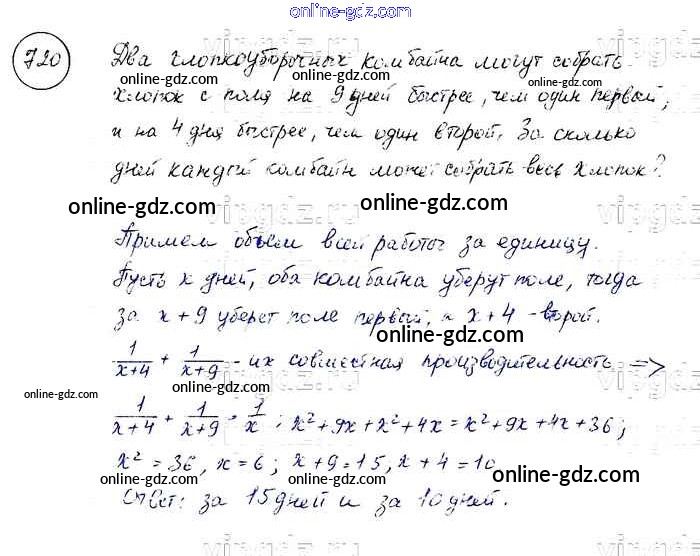 online-gdz.com
720 Два хлопкоуборочных комбайна могут собрать
online-gdz.com online-gdz.com online-gdz.com
хлопок с поля на 9 дней быстрее, чем один первый,
и на 4 дня быстрее, чем один второй. За сколько
дней каждый комбайн может собрать весь хлопок?
online-gdz.com online-gdz.com
Примем объем всей работы за единицу.
Пусть x дней, оба комбайна уберут поле, тогда
за x+9 уберет поле первый, а x+4 - второй.
online-gdz.com
1/(x+4) + 1/(x+9) - их совместная производительность =>
online-gdz.com online-gdz.com online-gdz.com
1/(x+4) + 1/(x+9) = 1/x ; x²+9x+x²+4x=x²+9x+4x+36;
x²=36, x=6; x+9=15, x+4=10
online-gdz.com
Ответ: за 15 дней и за 10 дней.
online-gdz.com online-gdz.com